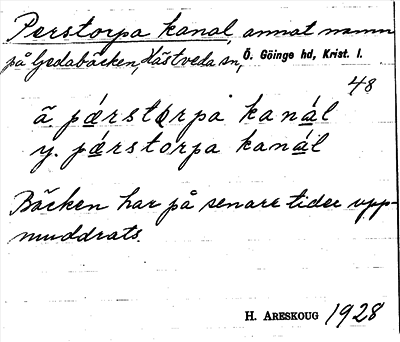 Perstorpa kanal, annat namn
på Gedabäcken, Hästveda sn, Ö. Göinge hd, Krist. l.
48
ä. pǽrstorpa kanál
y. pǽrstorpa kanál
Bäcken har på senare tider upp-
muddrats.
H. ARESKOUG 1928